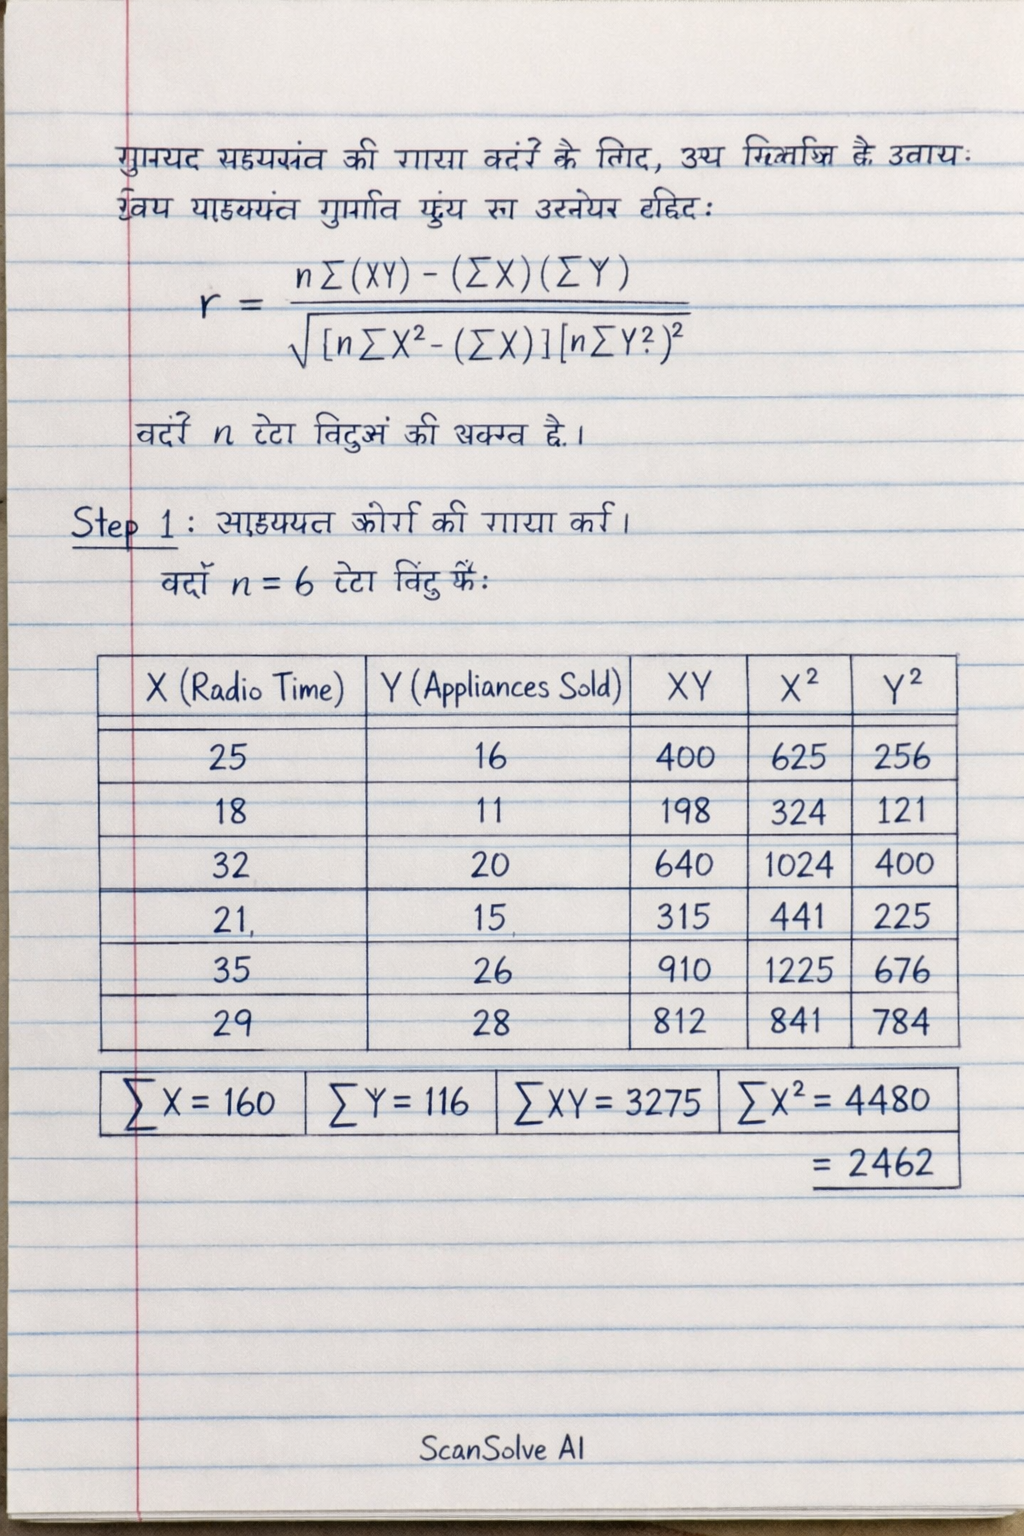 गुामयद सहयसंव की गासा वदंरें के तिाद, उय गिभाजि है उवायः
याडक्यंत गुार्माव फुंय सा उरनेयर टहिदः
r = n Σ(XY) - (ΣX)(ΣY) / √[nΣX² - (ΣX)][nΣY?)²
वदंरें n टेटा विदुअं की सक्ग्व है.।
Step 1: साडययत कोर्ग की गासा कर्ग।
वदाॅ n = 6 टेटा विंदु फैः
X (Radio Time) Y (Appliances Sold) XY X² Y²
25 16 400 625 256
18 11 198 324 121
32 20 640 1024 400
21, 15 315 441 225
35 26 910 1225 676
29 28 812 841 784
ΣX = 160 ΣY = 116 ΣXY = 3275 ΣX² = 4480
= 2462
ScanSolve AI